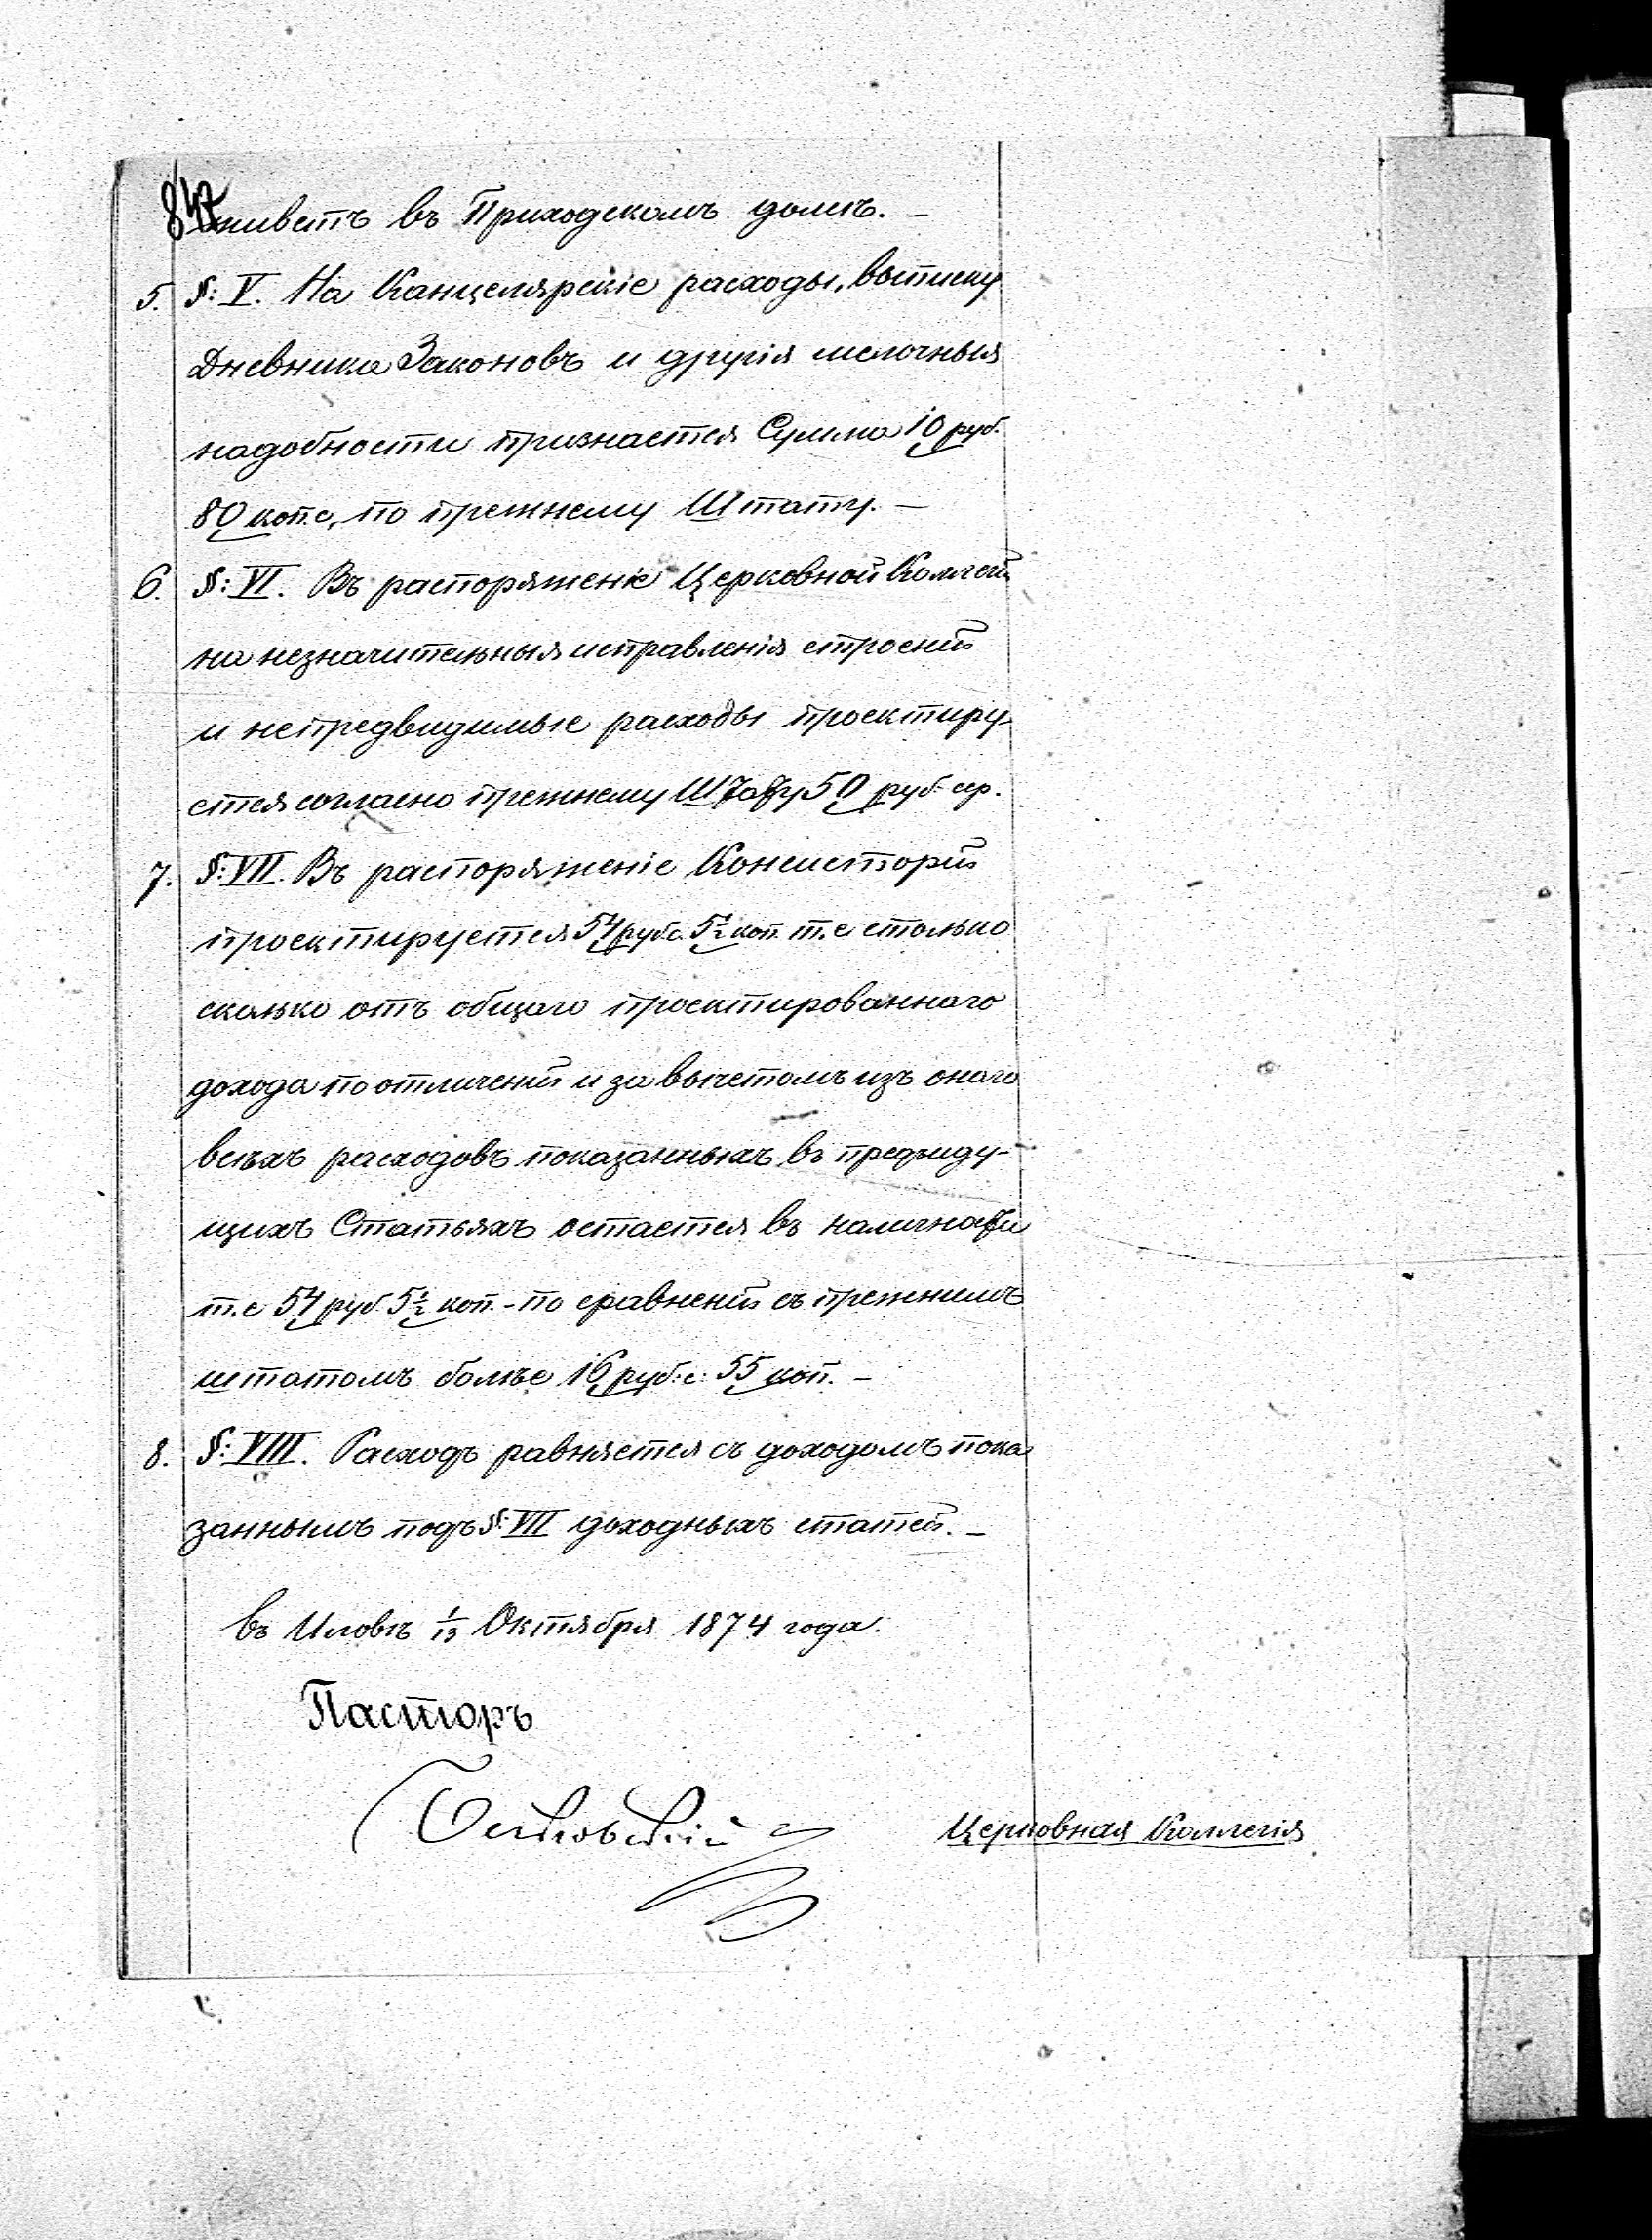 847
живетъ въ Приходскомъ домѣ. –
5. §: V. На Канцелярскіе расходы, выписку
Дневника Законовъ и другія мелочныя
надобности признается Сумма 10 руб.
80 коп. с. по прежнему Штату. –
6. §: VI. Въ распоряженіе Церковной Коллегіи
на незначительныя исправленія строеній
и непредвидимые расходы проектиру-
ется согласно прежнему Штату 50 руб. сер.
7. §: VII. Въ распоряженіе Консисторіи
проектируется 54 руб. с. 5½ коп. т. е столько
сколько отъ общаго проектированнаго
дохода по отличеніи и за вычетомъ изъ онаго
всѣхъ расходовъ показанныхъ въ предъиду-
щихъ Статьяхъ остается въ наличности
т. е 54 руб. 5½ коп. – по сравненіи съ прежнимъ
штатомъ болѣе 16 руб: с: 55 коп. –
8. §: VIII. Расходъ равняется съ доходомъ пока
заннымъ подъ §: VII доходныхъ статей. –
въ Иловѣ 1/13 Октября 1874 года.
Пасторъ
Церковная Коллегія